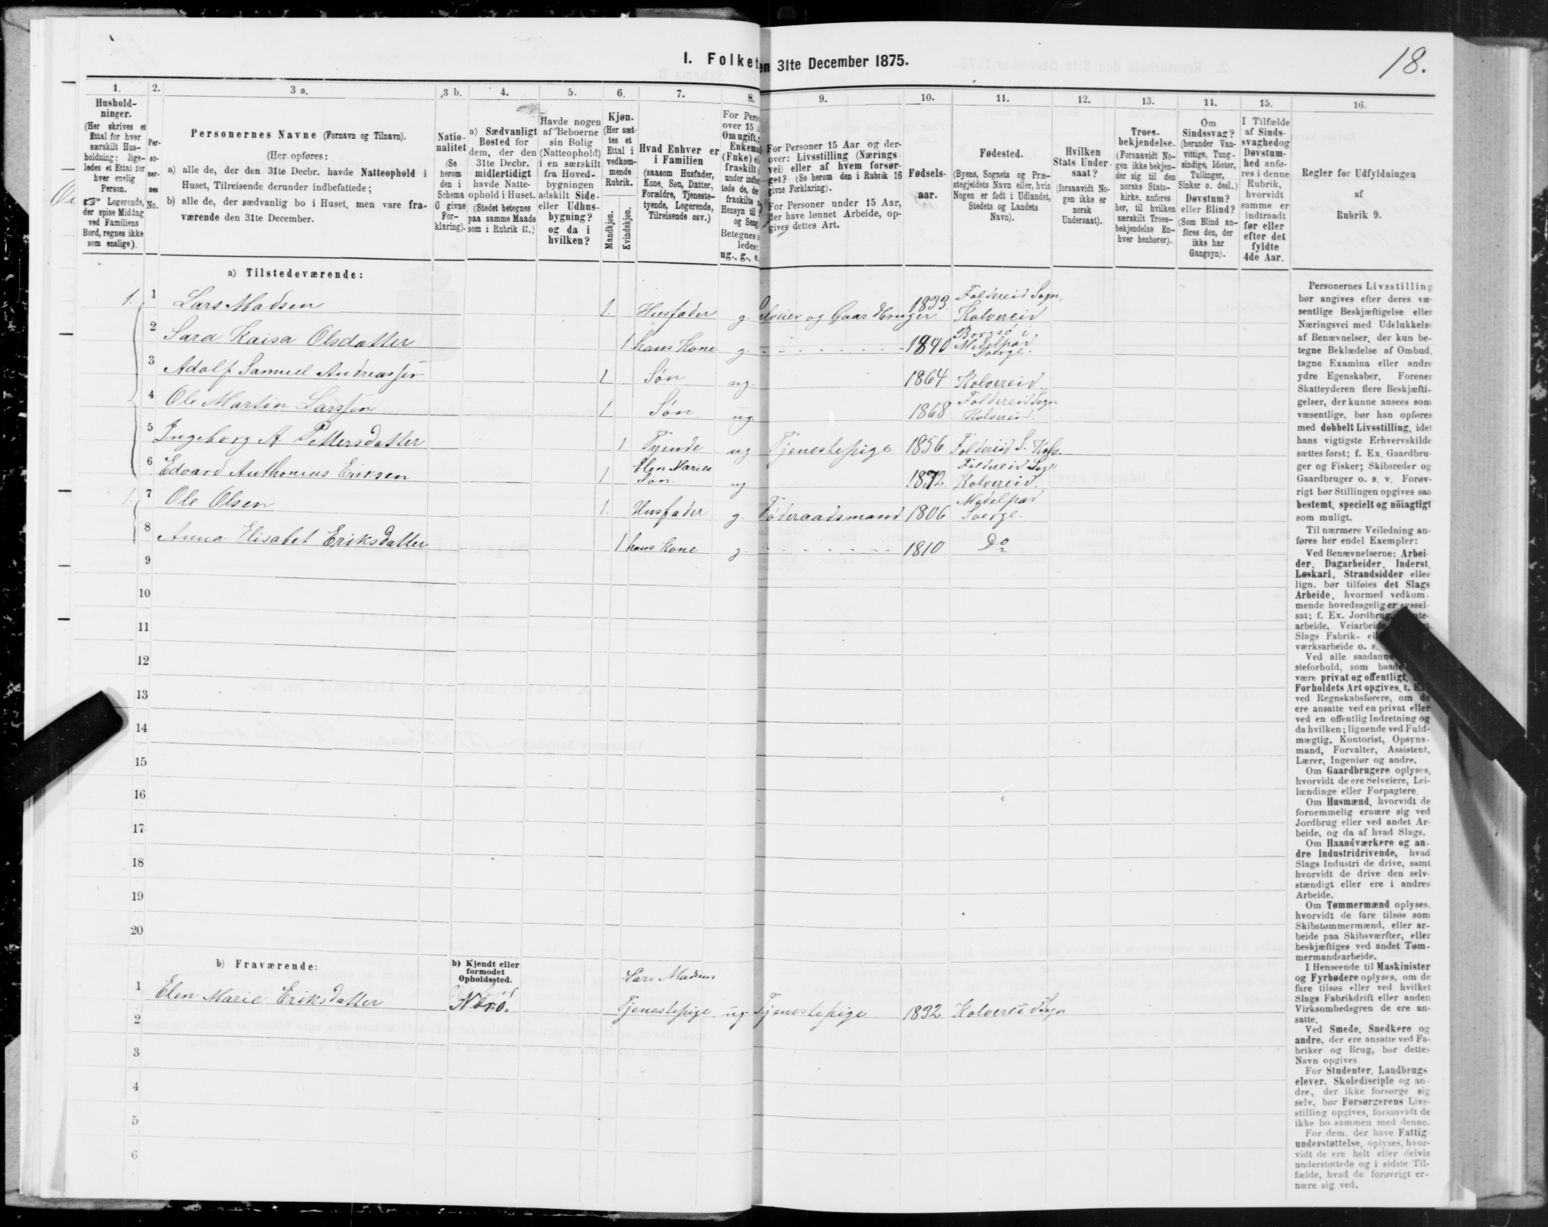 18.
I. Folketæn 31te December 1875.
1. 2. 3 a. 3 b. 4. 5. 6. 7. 8. 9. 10. 11. 12. 13. 14. 15. 16.
Hushold-
ninger.
(Her skrives et
Ettal for hver
særskilt Hus-
holdning; lige-
ledes et Ettal for
hver enslig
Person.
☞ Logerende,
der spise Middag
ved Familiens
Bord, regnes ikke
som enslige).
Per-
so-
ner-
nes
No.
Personernes Navne (Fornavn og Tilnavn).
(Her opføres:
a) alle de, der den 31te Decbr. havde Natteophold i
Huset, Tilreisende derunder indbefattede;
b) alle de, der sædvanlig bo i Huset, men vare fra-
værende den 31te December.
Natio-
nalitet
(Se
herom
den i
Schema
O givne
For-
klaring).
a) Sædvanligt
Bosted for
dem, der den
31te Decbr.
midlertidigt
havde Natte-
ophold i Huset.
(Stedet betegnes
paa samme Maade
som i Rubrik 11.)
Havde nogen
af Beboerne
sin Bolig
(Natteophold)
i en særskilt
fra Hoved-
bygningen
adskilt Side-
eller Udhus-
bygning?
og da i
hvilken?
Kjøn.
(Her sæt-
tes et
Ettal i
vedkom-
mende
Rubrik.
Mandkjøn.
Kvindekjøn.
Hvad Enhver er
i Familien
(saasom Husfader,
Kone, Søn, Datter,
Forældre, Tjeneste-
tyende, Logerende,
Tilreisende osv.)
For Pers
over 15
Om ugift,
Enkem
(Fnke) e
fraskilt
under indbe
tede de, de
fraskilte
Hensyn til
og Seng
Betegnes
ledes:
ug., g., e.
For Personer 15 Aar og der-
over: Livsstilling (Nærings
vei) eller af hvem forsør-
get? (Se herom den i Rubrik 16
givne Forklaring).
For Personer under 15 Aar,
der have lønnet Arbeide, op-
gives dettes Art.
Fødsels-
aar.
Fødested.
(Byens, Sognets og Præ-
stegjeldets Navn eller, hvis
Nogen er født i Udlandet,
Stedets og Landets
Navn).
Hvilken
Stats Under-
saat?
(forsaavidt No-
gen ikke er
norsk
Undersaat).
Troes-
bekjendelse.
(Forsaavidt No-
gen ikke bekjen-
der sig til den
norske Stats-
kirke, anføres
her, til hvilken
særskilt Troes-
bekjendelse En-
hver henhører).
Om
Sindssvag?
(herunder Van-
vittige, Tung-
sindige, Idioter,
Tullinger,
Sinker o. desl.)
Døvstum?
eller Blind?
(Som Blind an-
føres den, der
ikke har
Gangsyn).
I Tilfælde
af Sinds-
svaghed og
Døvstum-
hed anfø-
res i denne
Rubrik,
hvorvidt
samme er
indtraadt
før eller
efter det
fyldte
4de Aar.
Regler før Udfyldningen
af
Rubrik 9.
a) Tilstedeværende:
1. 1 Lars Madsen 1. Husfader g. Selveier og Gaardbruger 1833. Foldereid Sogn Kolvereid
2 Sara Kaisa Olsdatter 1 hans Kone g. 1840 Borgsø i Medelpad Sverge.
3 Adolf Samuel Andreassen 1 Søn ug. 1864 Kolvereid
4 Ole Martin Larssen 1 Søn ug 1868 Foldereid Sogn Kolvereid.
5 Ingeborg A Pettersdatter 1 Tyende ug Tjenestepige 1856 Foldereid S.
6 Edvard Anthonius Eriksen 1 Elen Maries Søn. ug 1872 Foldereid Sogn Kolvereid.
1. 7 Ole Olsen 1. Husfader g. Føderaadsmand 1806 Medelpad Sverge.
8 Anna Elisabet Eriksdatter 1 hans Kone g. 1810 Do
9
10
11
12
13
14
15
16
17
18
19
20
b) Fraværende:
b) Kjendt eller
formodet
Opholdssted.
1 Elen Marie Eriksdatter Nærö. Lars Madsens Tjenestepige. ug. Tjenestepige 1832 Kolvereid Sogn
2
3
4
5
6
Personernes Livsstilling
bør angives efter deres væ-
sentlige Beskjæftigelse eller
Næringsvei med Udelukkelse
af Benævnelser, der kun be-
tegne Beklædelse af Ombud,
tagne Examina eller andre
ydre Egenskaber. Forener
Skatteyderen flere Beskjæfti-
gelser, der kunne ansees som
væsentlige, bør han opføres
med dobbelt Livsstilling, idet
hans vigtigste Erhvervskilde
sættes først; f. Ex. Gaardbru-
ger og Fisker; Skibsreder og
Gaardbruger o. s. v. Forøv-
rigt bør Stillingen opgives saa
bestemt, specielt og nøiagtigt
som muligt.
Til nærmere Veiledning an-
føres her endel Exempler:
Ved Benævnelserne: Arbei-
der, Dagarbeider, Inderst,
Løskarl, Strandsidder eller
lign. bør tilføies det Slags
Arbeide, hvormed vedkom-
mende hovedsagelig er syssel-
sat; f. Ex. Jordbrug,
arbeide, Veiarbeide
Slags Fabrik-
værksarbeide o. s.
Ved alle saadanne
steforhold, som baade
være privat og offentligt,
Forholdets Art opgives, t. Ex.
ved Regnskabsførere, om de
ere ansatte ved en privat eller
ved en offentlig Indretning og
da hvilken; lignende ved Fuld-
mægtig, Kontorist, Opsyns-
mand, Forvalter, Assistent,
Lærer, Ingeniør og andre.
Om Gaardbrugere oplyses,
hvorvidt de ere Selveiere, Lei-
lændinge eller Forpagtere.
Om Husmænd, hvorvidt de
fornemmelig ernære sig ved
Jordbrug eller ved andet Ar-
beide, og da af hvad Slags.
Om Haandværkere og an-
dre Industridrivende, hvad
Slags Industri de drive, samt
hvorvidt de drive den selv-
stændigt eller ere i andres
Arbeide.
Om Tømmermænd oplyses,
hvorvidt de fare tilsøs som
Skibstømmermænd, eller ar-
beide paa Skibsværfter, eller
beskjæftiges ved andet Tøm-
mermandsarbeide.
I Henseende til Maskinister
og Fyrbødere oplyses, om de
fare tilsøs eller ved hvilket
Slags Fabrikdrift eller anden
Virksomhedsgren de ere an-
satte.
Ved Smede, Snedkere og
andre, der ere ansatte ved Fa-
briker og Brug, bør dettes
Navn opgives
For Studenter, Landbrugs
elever, Skoledisciple og an-
dre, der ikke forsørge sig
selv, bør Forsørgerens Livs-
stilling opgives, forsaavidt de
ikke bo sammen med denne.
For dem, der have Fattig
understøttelse, oplyses, hvor-
vidt de ere helt eller delvis
understøttede og i sidste Til-
fælde, hvad de forøvrigt er-
nære sig ved.